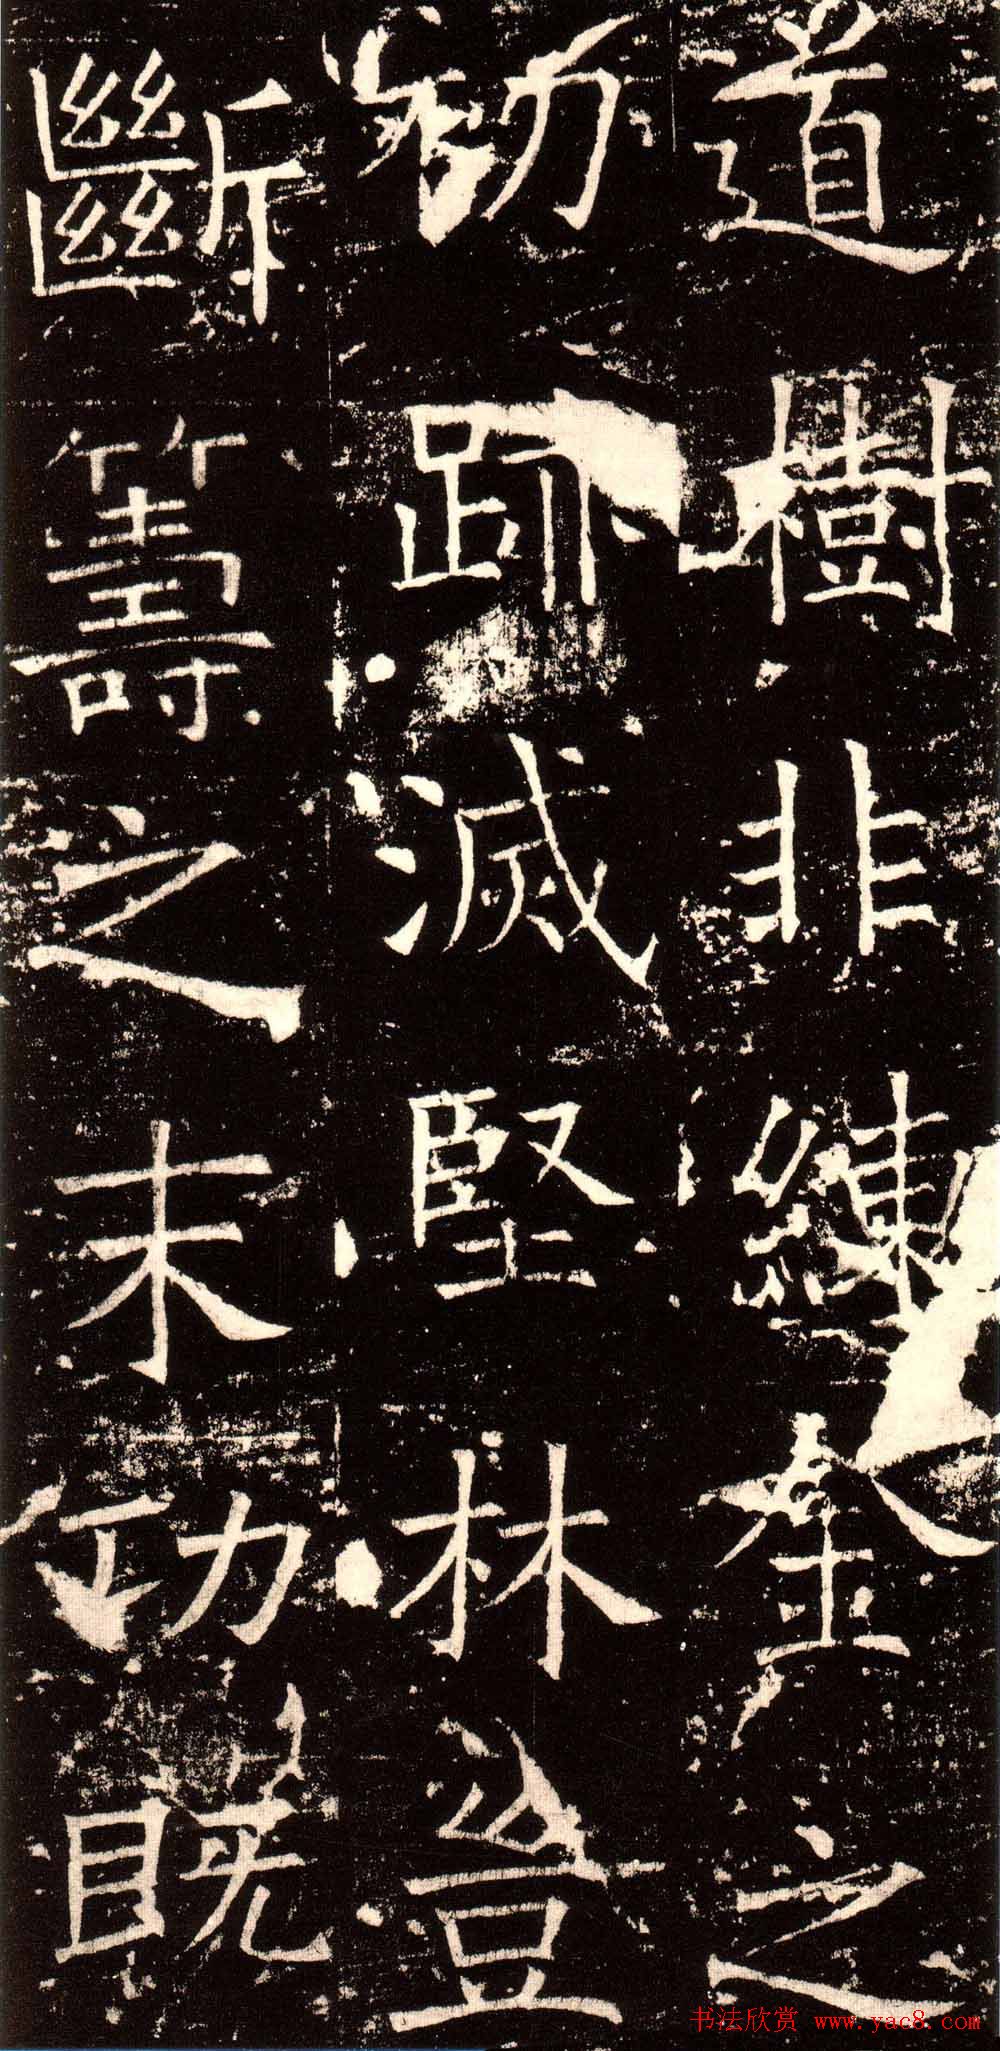 道樹非練金之
初跡滅堅林豈
斷籌之末功既
书法欣赏 www.yac8.com